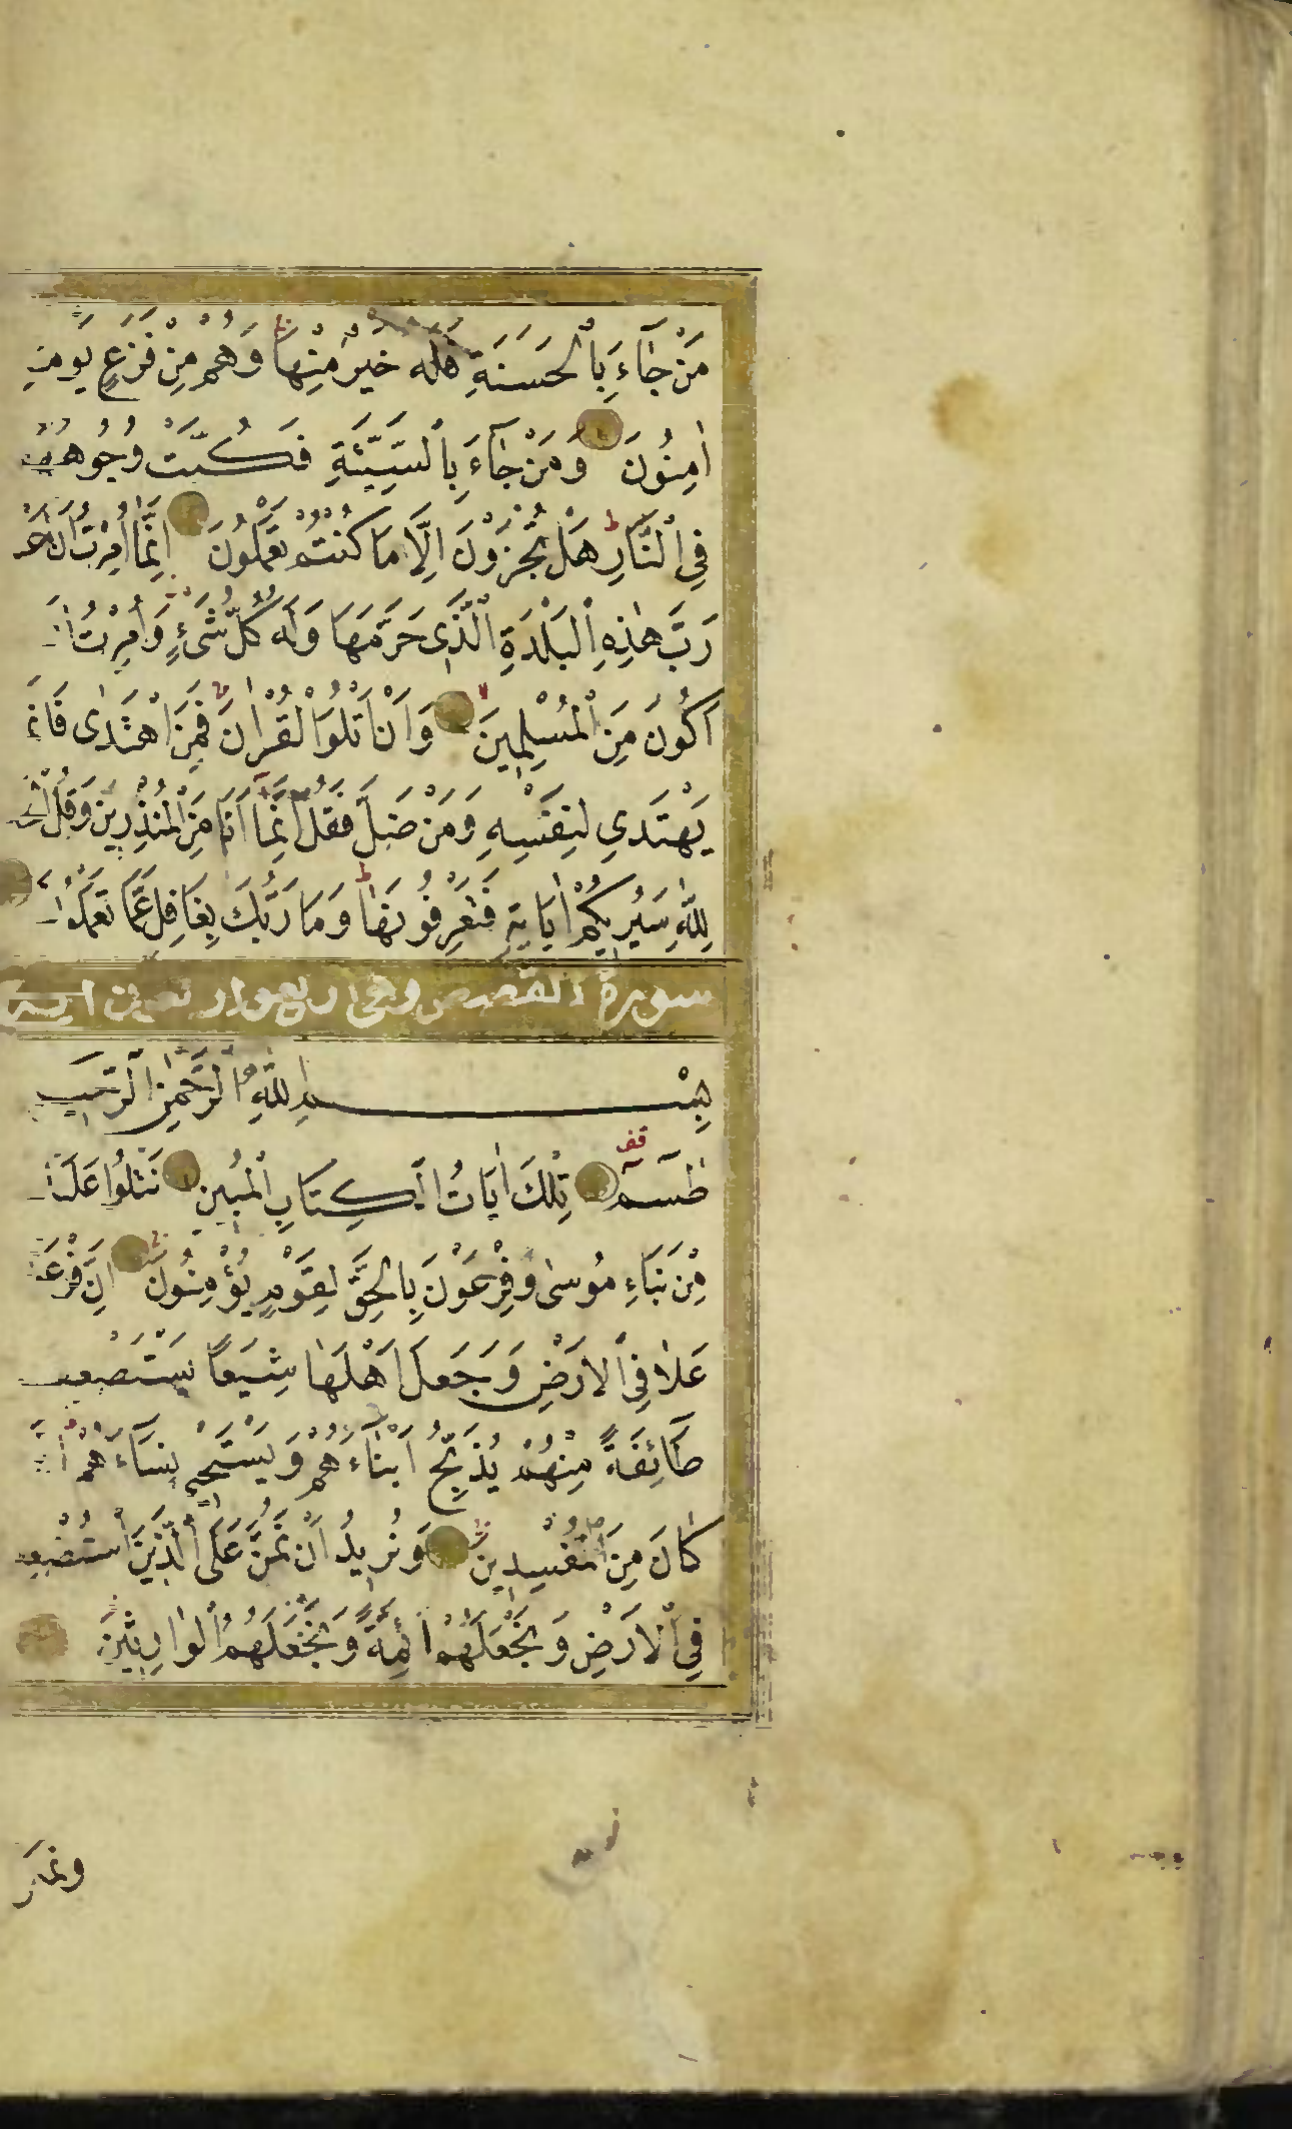 مَنْ جَآءَ بِالْحَسَنَةِ فَلَهُ خَيْرٌ مِنْهَا وَهُمْ مِنْ فَزَعٍ يَوْمَئِذٍ
اٰمِنُونَ وَمَنْ جَآءَ بِالسَّيِّئَةِ فَكُبَّتْ وُجُوهُهُمْ
فِي النَّارِ هَلْ تُجْزَوْنَ اِلَّا مَا كُنْتُمْ تَعْمَلُونَ اِنَّمَا اُمِرْتُ اَنْ
رَبَّ هٰذِهِ الْبَلْدَةِ الَّذِي حَرَّمَهَا وَلَهُ كُلُّ شَيْءٍ وَاُمِرْتُ اَنْ
اَكُونَ مِنَ الْمُسْلِمِينَ وَاَنْ اَتْلُوَا الْقُرْاٰنَ فَمَنِ اهْتَدٰى فَاِنَّمَا
يَهْتَدِي لِنَفْسِهِ وَمَنْ ضَلَّ فَقُلْ اِنَّمَا اَنَا مِنَ الْمُنْذِرِينَ وَقُلِ
لِلّٰهِ سَيُرِيكُمْ اٰيَاتِهِ فَتَعْرِفُونَهَا وَمَا رَبُّكَ بِغَافِلٍ عَمَّا تَعْمَلُونَ
سورة القصص وهى
بِسْمِ اللّٰهِ الرَّحْمٰنِ الرَّحِيمِ
قف
طٰسٓمٓ تِلْكَ اٰيَاتُ الْكِتَابِ الْمُبِينِ نَتْلُوا عَلَيْكَ
مِنْ نَبَاءِ مُوسٰى وَفِرْعَوْنَ بِالْحَقِّ لِقَوْمٍ يُؤْمِنُونَ اِنَّ فِرْعَوْنَ
عَلَا فِي الْاَرْضِ وَجَعَلَ اَهْلَهَا شِيَعًا يَسْتَضْعِفُ
طَآئِفَةً مِنْهُمْ يُذَبِّحُ اَبْنَآءَهُمْ وَيَسْتَحْيِ نِسَآءَهُمْ اِنَّهُ
كَانَ مِنَ الْمُفْسِدِينَ وَنُرِيدُ اَنْ نَمُنَّ عَلَى الَّذِينَ اسْتُضْعِفُوا
فِي الْاَرْضِ وَنَجْعَلَهُمْ اَئِمَّةً وَنَجْعَلَهُمُ الْوَارِثِينَ